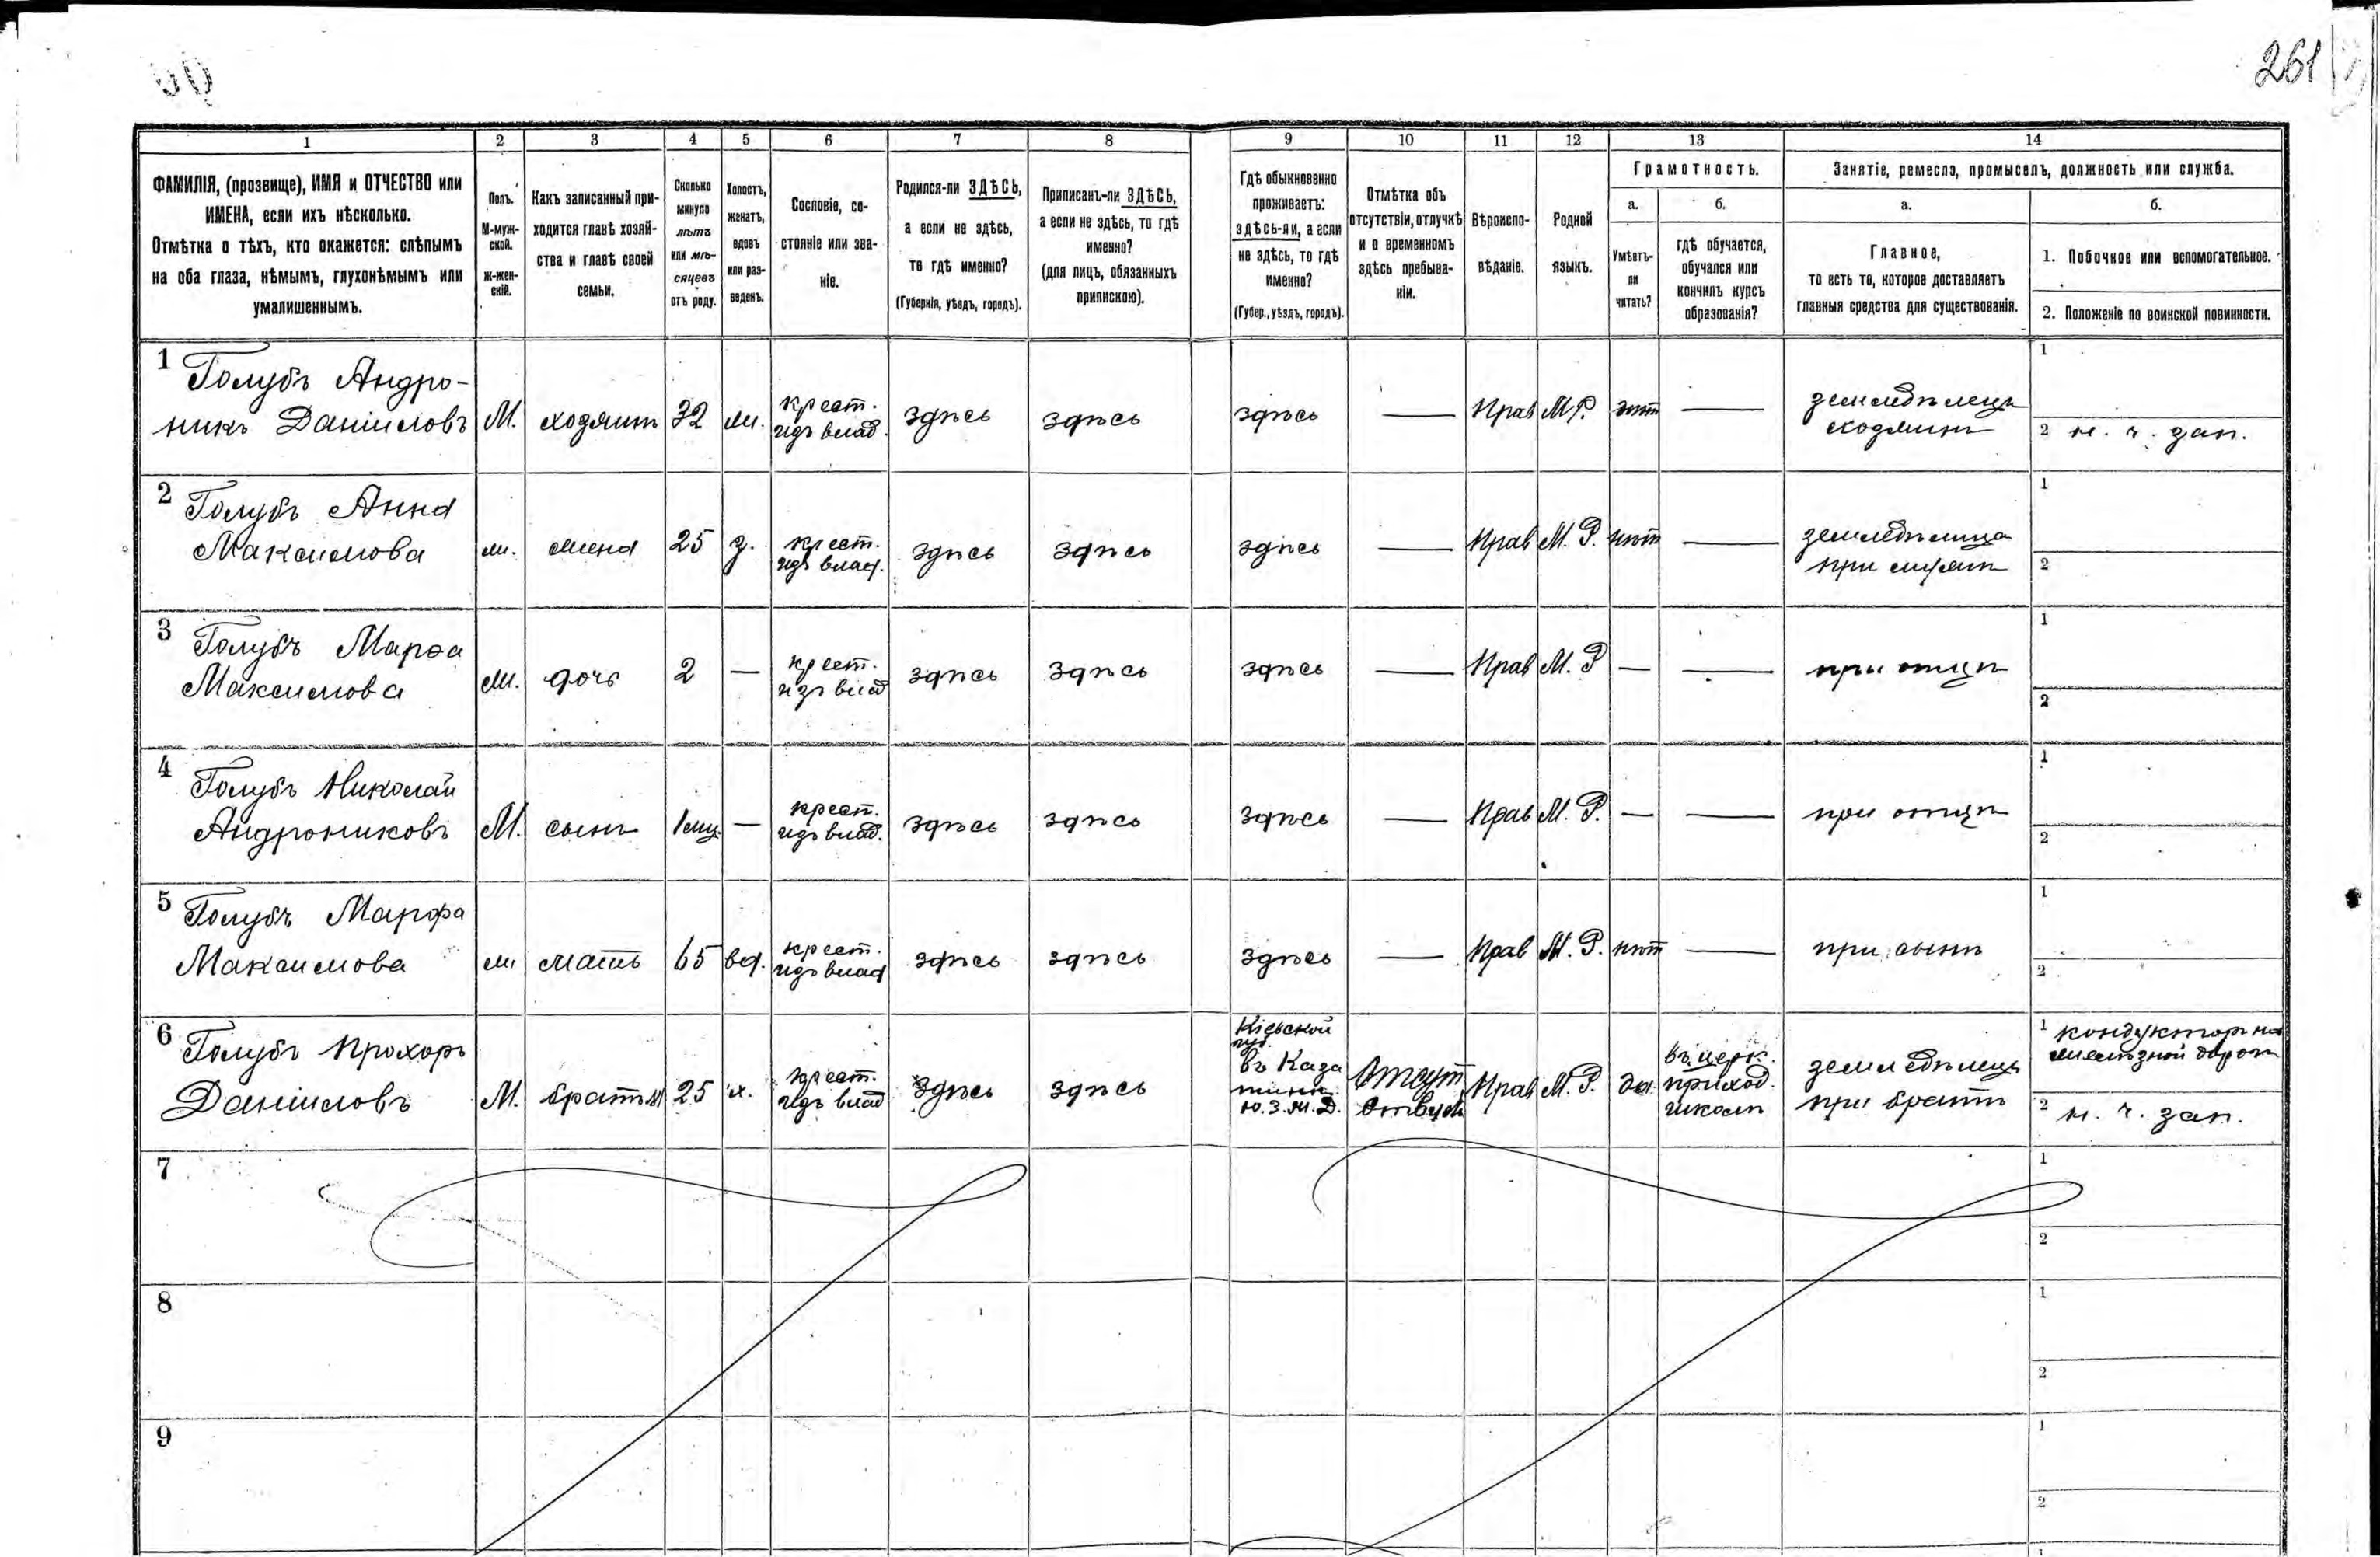 261
1
2
3
4
5
6
7
8
9
10
11
12
13
14
ФАМИЛІЯ, (прозвище), ИМЯ и ОТЧЕСТВО или
ИМЕНА, если ихъ нѣсколько.
Отмѣтка о тѣхъ, кто окажется: слѣпымъ
на оба глаза, нѣмымъ, глухонѣмымъ или
умалишеннымъ.
Полъ.
М-муж-
ской.
ж-жен-
скій.
Какъ записанный при-
ходится главѣ хозяй-
ства и главѣ своей
семьи.
Сколько
минуло
лѣтъ
или мѣ-
сяцевъ
отъ роду.
Холостъ,
женатъ,
вдовъ
или раз-
веденъ.
Сословіе, со-
стояніе или зва-
ніе.
Родился-ли ЗДѢСЬ,
а если не здѣсь,
то гдѣ именно?
(Губернія, уѣздъ, городъ).
Приписанъ-ли ЗДѢСЬ,
а если не здѣсь, то гдѣ
именно?
(для лицъ, обязанныхъ
припискою).
Гдѣ обыкновенно
проживаетъ:
здѣсь-ли, а если
не здѣсь, то гдѣ
именно?
(Губер., уѣздъ, городъ).
Отмѣтка объ
отсутствіи, отлучкѣ
и о временномъ
здѣсь пребыва-
ніи.
Вѣроиспо-
вѣданіе.
Родной
языкъ.
Грамотность.
а.
Умѣетъ-
ли
читать?
б.
гдѣ обучается,
обучался или
кончилъ курсъ
образованія?
Занятіе, ремесло, промыселъ, должность или служба.
а.
Главное,
то есть то, которое доставляетъ
главныя средства для существованія.
б.
1. Побочное или вспомогательное.
2. Положеніе по воинской повинности.
1 Голубъ Андро-
никъ Даніиловъ
М. хозяинъ 32 ж. крест.
изъ влад. здѣсь здѣсь здѣсь — Прав М. Р. нѣт — земледѣлецъ
хозяинъ
1
2 н. ч. зап.
2 Голубъ Анна
Максимова
ж. жена 25 з. крест.
изъ влад. здѣсь здѣсь здѣсь — Прав М. Р. нѣт — земледѣлица
при мужѣ
1
2
3 Голубъ Марѳа
Максимова
ж. дочь 2 — крест.
изъ влад здѣсь здѣсь здѣсь — Прав М. Р — — при отцѣ
1
2
4 Голубъ Николай
Андрониковъ
М. сынъ 1 мц. — крест.
изъ влад. здѣсь здѣсь здѣсь — Прав М. Р. — — при отцѣ
1
2
5 Голубъ Марфа
Максимова
ж мать 65 вд. крест.
изъ влад здѣсь здѣсь здѣсь — Прав М. Р. нѣт — при сынѣ
1
2
6 Голубъ Прохоръ
Даніиловъ
М. братъ 25 х. крест.
изъ влад здѣсь здѣсь
Кіевской
губ.
въ Каза
тинѣ
Ю. З. Ж. Д.
Прав М. Р. да
въ церк.
приход.
школѣ
земледѣлецъ
при братѣ
1 кондукторъ на
желѣзной дорогѣ
2 н. ч. зап.
7
1
2
8
1
2
9
1
2